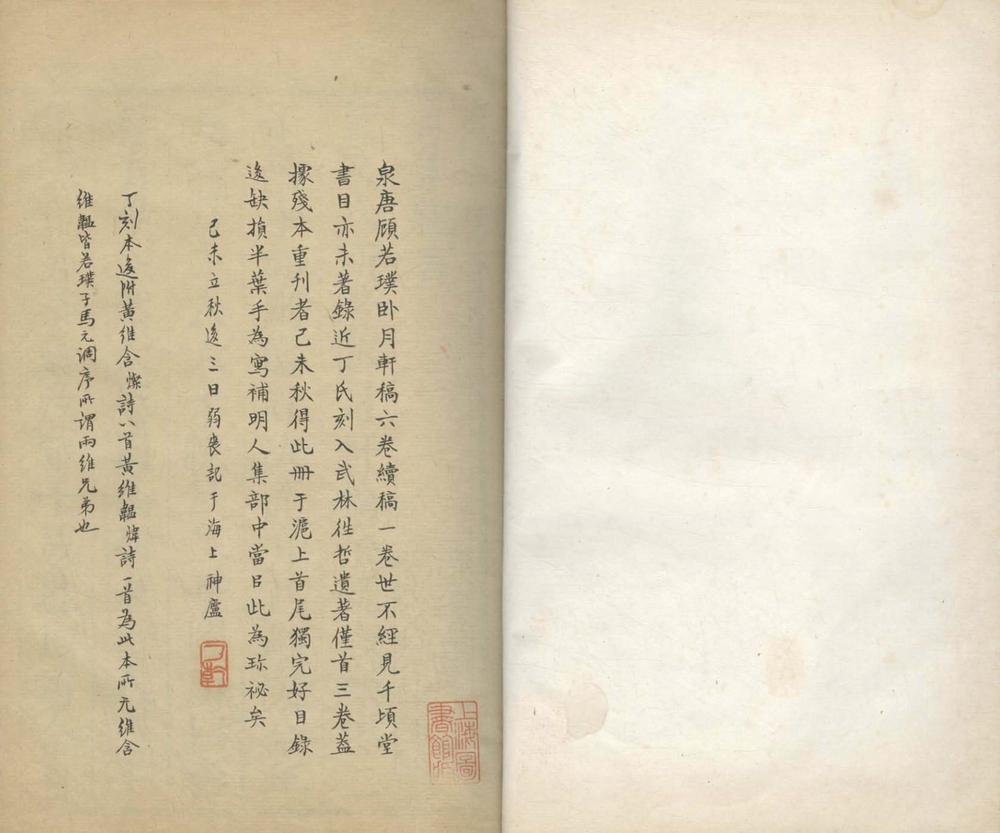 泉唐顧若璞卧月軒稿六卷續稿一卷世不經見千頃堂
書目亦未著錄近丁氏刻入武林徃哲遺著僅首三卷葢
據殘本重刊者己未秋得此冊于滬上首尾獨完好目錄
後缺損半葉手為寫補明人集部中當㠯此為珎祕矣
己未立秋後三日弱喪記于海上神廬
丁刻本後附黃維含燦詩八首黃維韞煒詩一首為此本所无維含
維韞皆若璞子馬元調序所謂兩維兄弟也
上海圖
書館藏